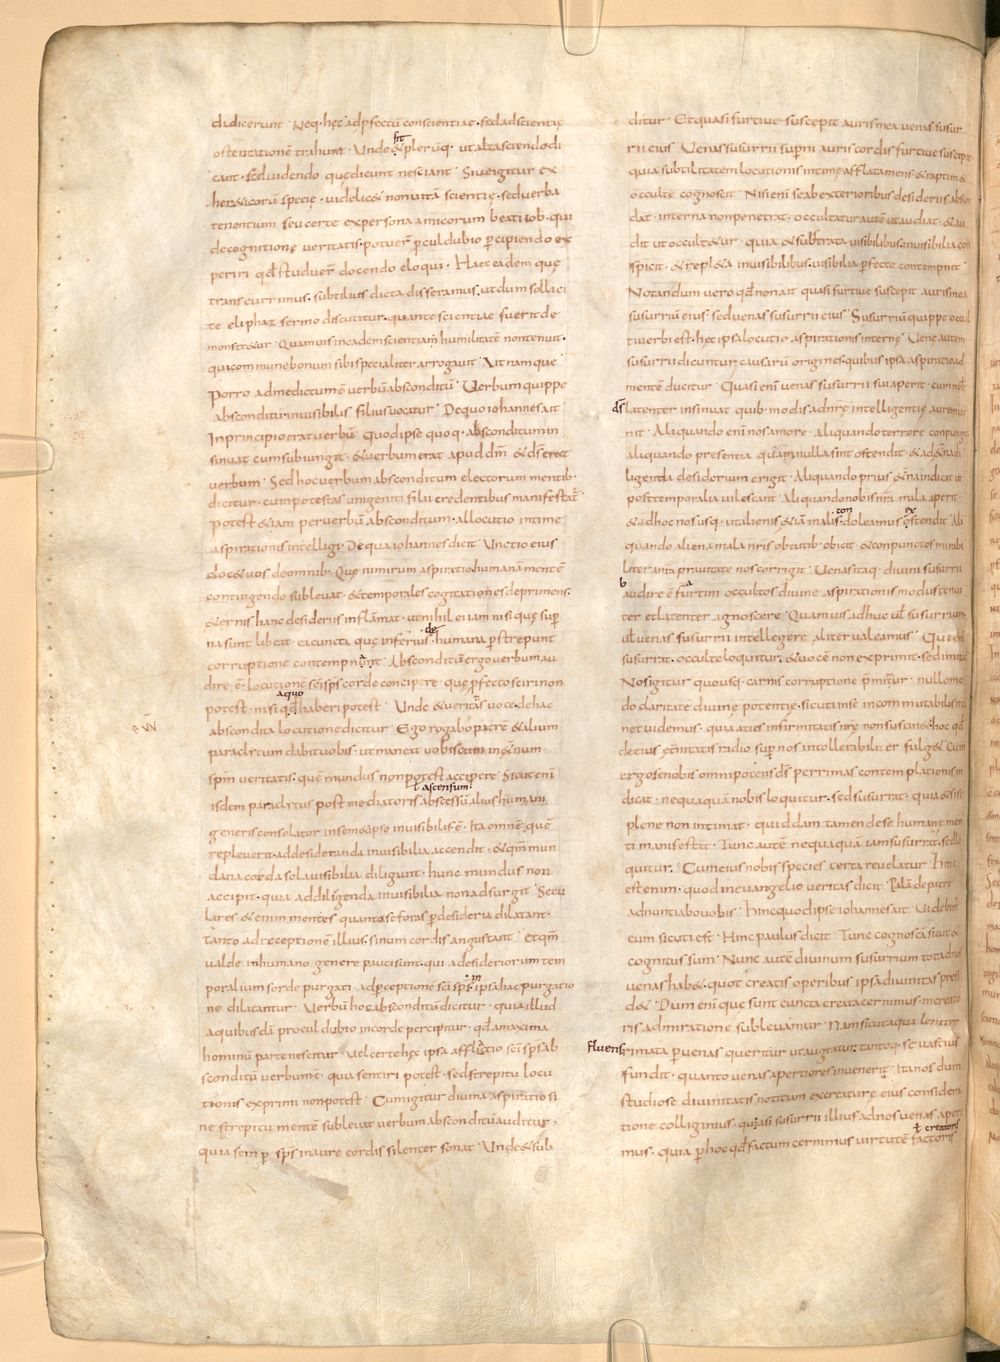 didicerunt · Neq· hęc ad pfectū conscientiae · sed ad scientię
ostentationē trahunt · Unde & plerūq· ut alta sciendo di
cant · sed uidendo que dicunt nesciant · Siue igitur ex
her&icorū specię · uidelic& non uita scientię · sed uerba
tenentium seu certe ex persona amicorum beati iob · qui
de cognitione ueritatis · potuer̄ pcul dubio pcipiendo ex
periri qd̄ studuer̄ docendo eloqui · Haec eadem quę
transcurrimus · subtilius dicta disseramus · ut dum sollici
te eliphaz sermo discutitur · quante scientiae fuerit de
monstr&ur · Quamuis in eadem scientiam humilitatē non tenuit ·
qui commune bonum sibi specialiter arrogauit · Ait namque
Porro ad me dictum ē uerbū absconditū · Uerbum quippe
absconditū inuisibilis filius uocatur · De quo iohannes ait
In principio erat uerbū · Quod ipse quoq· absconditum in
sinuat cum subiungit · & uerbum erat apud dm̄ & ds̄ erat
uerbum · Sed hoc uerbum absconditum electorum mentib·
dicitur · cum potestas unigeniti filii credentibus manifestat̄
Potest &iam per uerbū absconditum · allocutio intime
aspirationis intelligi · De qua iohannes dicit · Unctio eius
doc& uos de omnib· Quę nimirum aspiratio humanā mentē
contingendo subleuat · & temporales cogitationes deprimens ·
&ernis hanc desideriis inflāmat · ut nihil ei iam nisi quę sup
na sint libeat · ei cuncta quę inferius · de humana pstrepunt
corruptione contempnūnt · Absconditū ergo uerbum au
dire ē · locutionē sc̄i sps̄ corde concipere · quę pfecto sciri non
potest · nisi a quo haberi potest · Unde & ueritas uoce de hac
abscondita locutione dicitur · Ego rogabo patrē & alium
paraclitum dabit uobis · ut maneat uobiscum in &ernum
spm̄ ueritatis · quē mundus non potest accipere · Sicut eni
ł ascensum
isdem paraclitus post mediatoris abscessū alius humani
generis consolator in sem&ipso inuisibilis ē · Ita omnē quē
repleuerit · ad desideranda inuisibilia accendit · & qm̄ mun
dana corda sola uisibilia diligunt · hunc mundus non
accipit · quia ad diligenda inuisibilia non adsurgit · Secu
lares &enim mentes quanto se foras p desideria dilatant ·
tanto ad receptionē illius · sinum cordis angustant · et qm̄
ualde in humano genere pauci sunt · qui a desideriorum tem
poralium sorde purgati · ad pceptionē sc̄i sps̄ · in ipsa hac purgatio
ne dilatantur · Uerbū hoc absconditū dicitur · quia illud
a quibusdā procul dubio in corde percipitur · qd̄ a maxima
hominū parte nescitur · Uel certe hęc ipsa afflatio sc̄i sps̄ ab
sconditū uerbum ē · quia sentiri potest · sed strepitu locu
tionis exprimi non potest · Cum igitur diuina aspiratio si
ne strepitu mentē subleuat uerbum absconditū auditur ·
quia sermp sps̄ in aure cordis silenter sonat · Unde & sub
ditur · Et quasi furtiue suscepit auris mea uenas susur
rii eius · Uenas susurrii supni auris cordis furtiue suscipit ·
quia subtilitatem locutionis intime afflata mens & raptim &
occulte cognoscit · Nisi eni se ab exterioribus desideriis abscon
dat · interna non penetrat · occultatur autē ut audiat · & au
dit ut occult&ur · quia & subtrata uisibilibus inuisibilia con
spicit · & repl&a inuisibilibus · uisibilia pfecte contempnit ·
Notandum uero qd̄ non ait quasi furtiue suscepit auris mea
susurriū eius · sed uenas susurrii eius · Susurriū quippe occul
ti uerbi est · hęc ipsa locutio aspirationis internę · Uenę autem
susurrii dicuntur causarū origines · quibus ipsa aspiratio ad
mentē ducitur · Quasi eni uenas susurrii sui aperit · cum nob̄
ds̄ latenter insinuat quib· modis ad nr̄ę intelligentię aurem ue
nit · Aliquando eni nos amore · aliquando terrore conpungit
aliquando presentia quā nulla sint ostendit · & ad &erna di
ligenda desiderium erigit · Aliquando prius &erna indicat ut
post temporalia uilescant · Aliquando nobis nr̄a mala aperit ·
& ad hoc nos usq· ut alienis &iā malis con doleamus ex ostendit · Ali
quando aliena mala nr̄is obtutib· obicit · & conpunctos mirabi
liter a nr̄a prauitate nos corrigit · Uenas itaq· diuini susurrii
b audire ē furtim occultos diuine aspirationis modus tenui
ter et latenter agnoscere · Quamuis adhuc uł susurrium
uł uenas susurrii intellegere aliter ualeamus ·
susurrat · occulte loquitur · & uocē non exprimit · sed imitat̄
Nos igitur quousq· carnis corruptione pmimur · nullo mo
do claritatē diuinę potentię · sicuti in se incommutabilis ma
net uidemus · quia acies infirmitatis nr̄ę non sustinet hoc qd̄
de eius &ernitatis radio sup nos intollerabiliter fulg& · Cum
ergo se nobis omnipotens ds̄ per rimas contemplationis in
dicat · nequaquā nobis loquitur · sed susurrat · quia & si se
plene non intimat · quiddam tamen de se humane men
ti manifestat · Tunc autē nequaquā iam susurrat · sed lo
quitur · Cum eius nobis species certa reuelatur · Hinc
est enim · quod in euangelio ueritas dicit · Palā de patre
adnuntiabo uobis · Hinc quod ipse iohannes ait · Uidebim̄
eum sicuti est · Hinc paulus dicit · Tunc cognoscā sicut &
cognitus sum · Nunc autē diuinum susurrium tot ad nos
uenas hab& · quot creatis operibus ipsa diuinitas presi
d& · Dum eni que sunt cuncta creata cernimus · in creato
ris admiratione subleuamur · Nam sicut aqua leniter
fluens rimata p uenas queritur ut augeatur · tantoq· se uastius
fundit · quanto uenas apertiores inuenerit · Ita nos dum
studiose diuinitatis notitiam ex creaturę eius considera
tione colligimus · quasi susurrii illius ad nos uenas aperi
ł creatoris
mus · quia p hoc qd̄ factum cernimus uirtutē factoris